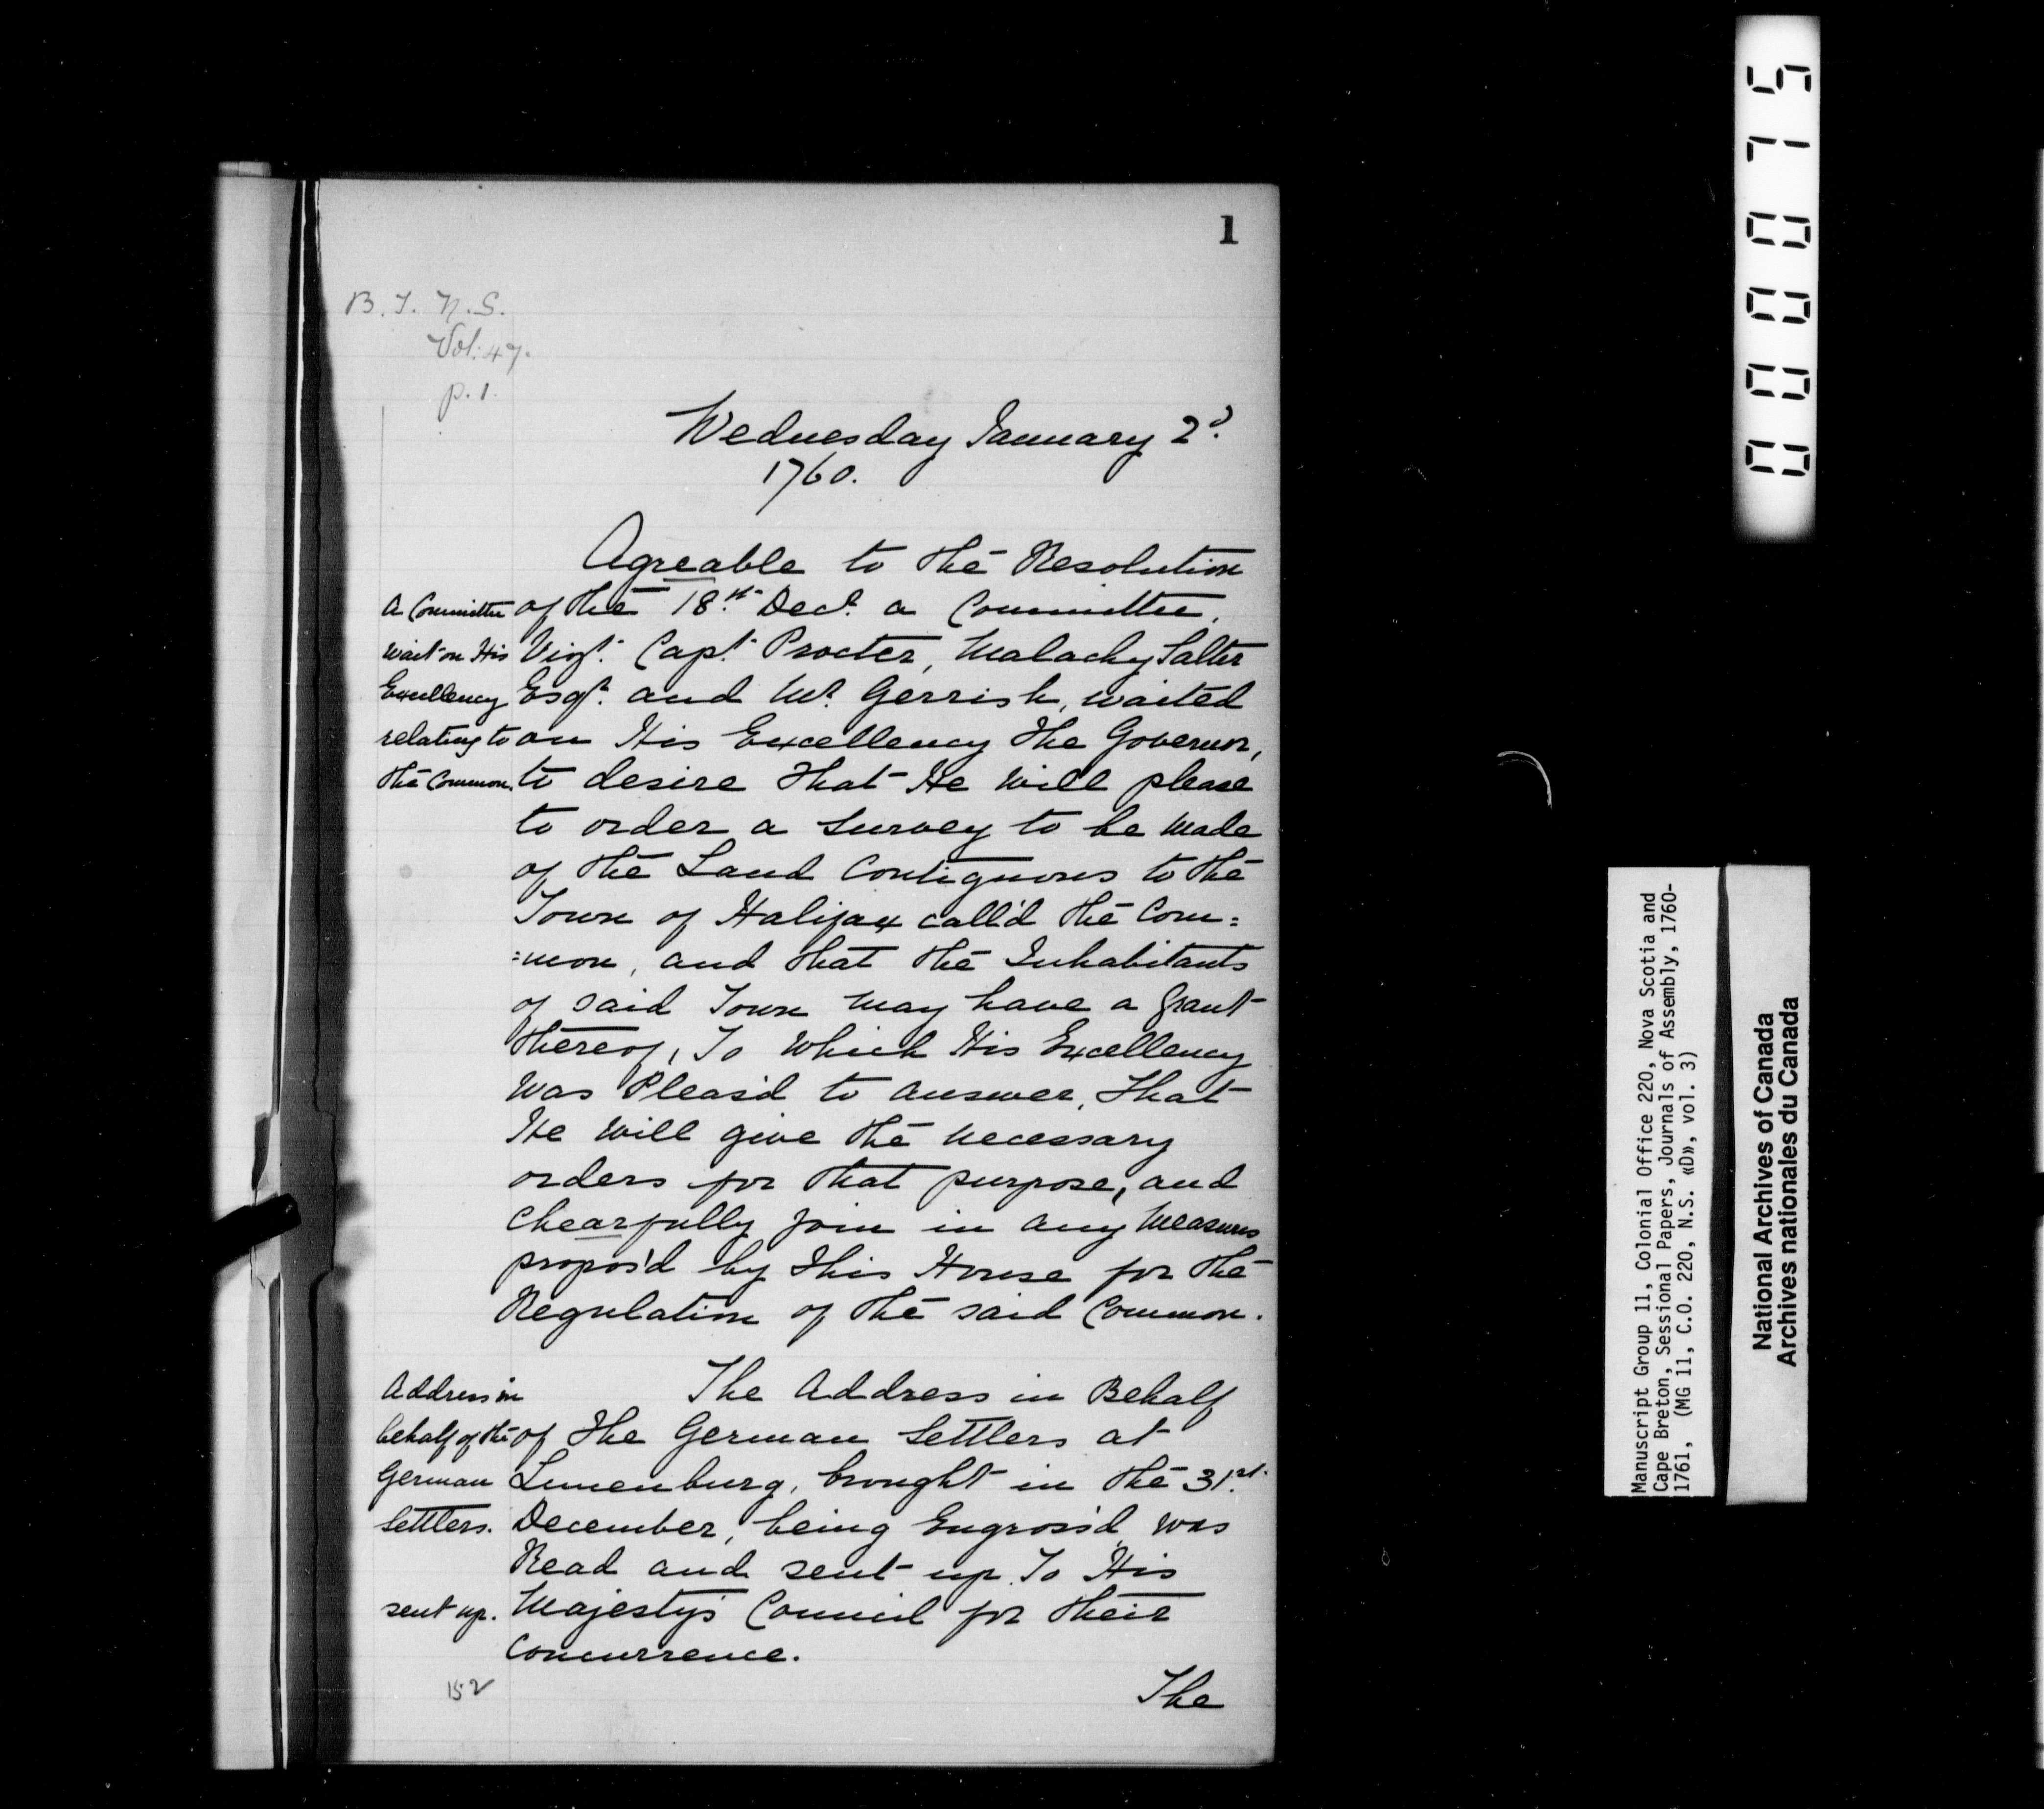 1
B. T. N. S.
Vol: 47.
p. 1.
Wednesday January 2d.
1760.
Agreable to the Resolution
of the 18th. Decr. a Committee,
Vizt. Capt. Procter, Malachy Salter
Esqr. and Mr. Gerrish, waited
on His Excellency the Governor,
to desire that He will please
to order a Survey to be made
of the Land Contiguous to the
Town of Halifax call'd the Com=
=mon, and that the Inhabitants
of said Town may have a Grant
thereof, To Which His Excellency
Was Pleas'd to answer, That
He Will give the necessary
orders for that purpose, and
Chearfully join in any Measures
propos'd by this House for the
Regulation of the said Common.
A Committee
wait on His
Excellency
relating to
the Common.
The Address in Behalf
of the German Settlers at
Lunenburg, brought in the 31st.
December, being Engross'd, was
Read and sent up To His
Majesty's Council for their
Concurrence.
Address in
behalf of the
German
Settlers.
sent up.
152
The
0000075
Manuscript Group 11, Colonial Office 220, Nova Scotia and
Cape Breton, Sessional Papers, Journals of Assembly, 1760-
1761, (MG 11, C.O. 220, N.S. «D», vol. 3)
National Archives of Canada
Archives nationales du Canada